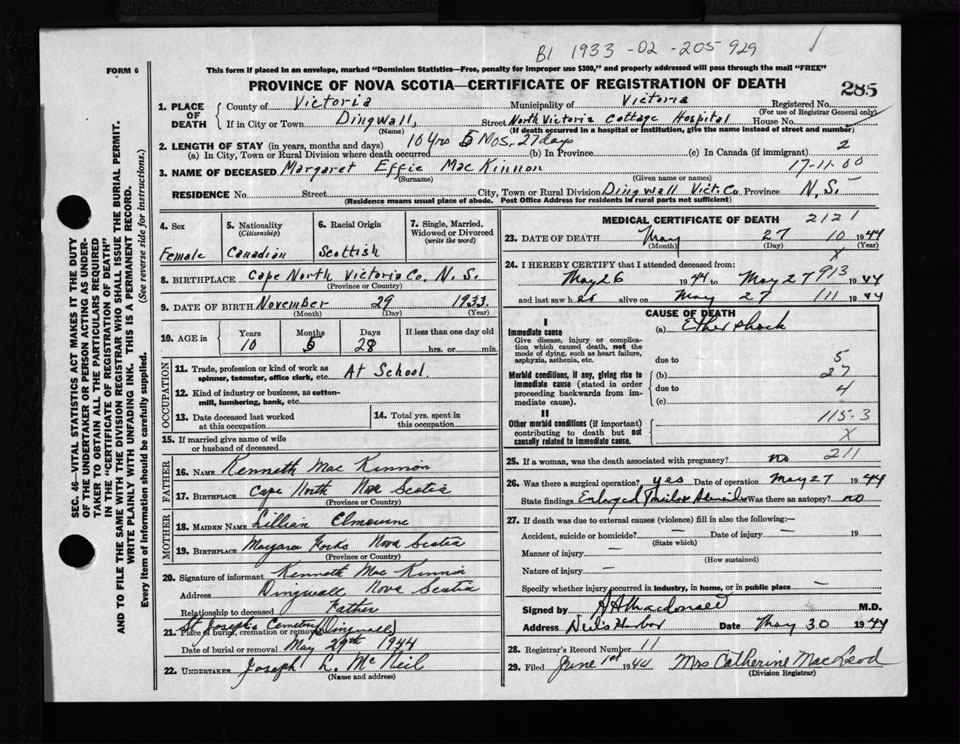 B1 1933-02-205929
FORM 6
This form if placed in an envelope, marked "Dominion Statistics—Free, penalty for improper use $300," and properly addressed will pass through the mail "FREE"
PROVINCE OF NOVA SCOTIA—CERTIFICATE OF REGISTRATION OF DEATH
285
1. PLACE OF DEATH
County of Victoria Municipality of Victoria Registered No.
(For use of Registrar General only)
If in City or Town Dingwall, Street North Victoria Cottage Hospital House No.
(Name) (If death occurred in a hospital or institution, give the name instead of street and number)
2. LENGTH OF STAY (in years, months and days) 10 yrs 5 Mos. 27 days
(a) In City, Town or Rural Division where death occurred (b) In Province (c) In Canada (if immigrant) 2
3. NAME OF DECEASED Margaret Effie MacKinnon 17-11-00
(Surname) (Given name or names)
RESIDENCE No. Street City, Town or Rural Division Dingwall Vict. Co. Province N.S.
(Residence means usual place of abode. Post Office Address for residents in rural parts not sufficient)
4. Sex
Female
5. Nationality
(Citizenship)
Canadian
6. Racial Origin
Scottish
7. Single, Married, Widowed or Divorced
(write the word)
8. BIRTHPLACE Cape North Victoria Co. N.S.
(Province or Country)
9. DATE OF BIRTH November 29 1933
(Month) (Day) (Year)
10. AGE in
Years Months Days If less than one day old
10 5 28 hrs. or min.
OCCUPATION
11. Trade, profession or kind of work as spinner, teamster, office clerk, etc. At School.
12. Kind of industry or business, as cotton-mill, lumbering, bank, etc.
13. Date deceased last worked at this occupation
14. Total yrs. spent in this occupation
15. If married give name of wife or husband of deceased
FATHER
16. NAME Kenneth MacKinnon
17. BIRTHPLACE Cape North Nova Scotia
(Province or Country)
MOTHER
18. MAIDEN NAME Lillian
19. BIRTHPLACE Margaree Forks Nova Scotia
(Province or Country)
20. Signature of informant Kenneth MacKinnon
Address Dingwall Nova Scotia
Relationship to deceased Father
St Josephs Cemetery (Dingwall)
21. Place of burial, cremation or removal
Date of burial or removal May 29th 1944
22. UNDERTAKER Joseph L. McNeil
(Name and address)
MEDICAL CERTIFICATE OF DEATH 2121
23. DATE OF DEATH May 27 10 1944
(Month) (Day) (Year)
X
24. I HEREBY CERTIFY that I attended deceased from:
May 26 1944 to May 27 913 1944
and last saw her alive on May 27 111 1944
CAUSE OF DEATH
I
Immediate cause
Give disease, injury or complication which caused death, not the mode of dying, such as heart failure, asphyxia, asthenia, etc.
(a) Ether shock
due to 5
Morbid conditions, if any, giving rise to immediate cause (stated in order proceeding backwards from immediate cause).
(b) 27
due to 4
(c)
II
Other morbid conditions (if important) contributing to death but not causally related to immediate cause.
115-3
X
25. If a woman, was the death associated with pregnancy? no 211
26. Was there a surgical operation? yes Date of operation May 27 1944
State findings Enlarged Tonsils Adenoids Was there an autopsy? no
27. If death was due to external causes (violence) fill in also the following:—
Accident, suicide or homicide? — Date of injury — 19
(State which)
Manner of injury —
(How sustained)
Nature of injury —
Specify whether injury occurred in industry, in home, or in public place —
Signed by A A Macdonald M.D.
Address Neil's Harbor Date May 30 1944
28. Registrar's Record Number 11
29. Filed June 1st 1944 Mrs Catherine MacLeod
(Division Registrar)
SEC. 46—VITAL STATISTICS ACT MAKES IT THE DUTY
OF THE UNDERTAKER OR PERSON ACTING AS UNDER-
TAKER TO OBTAIN ALL THE PARTICULARS REQUIRED
IN THE "CERTIFICATE OF REGISTRATION OF DEATH"
AND TO FILE THE SAME WITH THE DIVISION REGISTRAR WHO SHALL ISSUE THE BURIAL PERMIT.
WRITE PLAINLY WITH UNFADING INK. THIS IS A PERMANENT RECORD.
Every item of information should be carefully supplied. (See reverse side for instructions.)